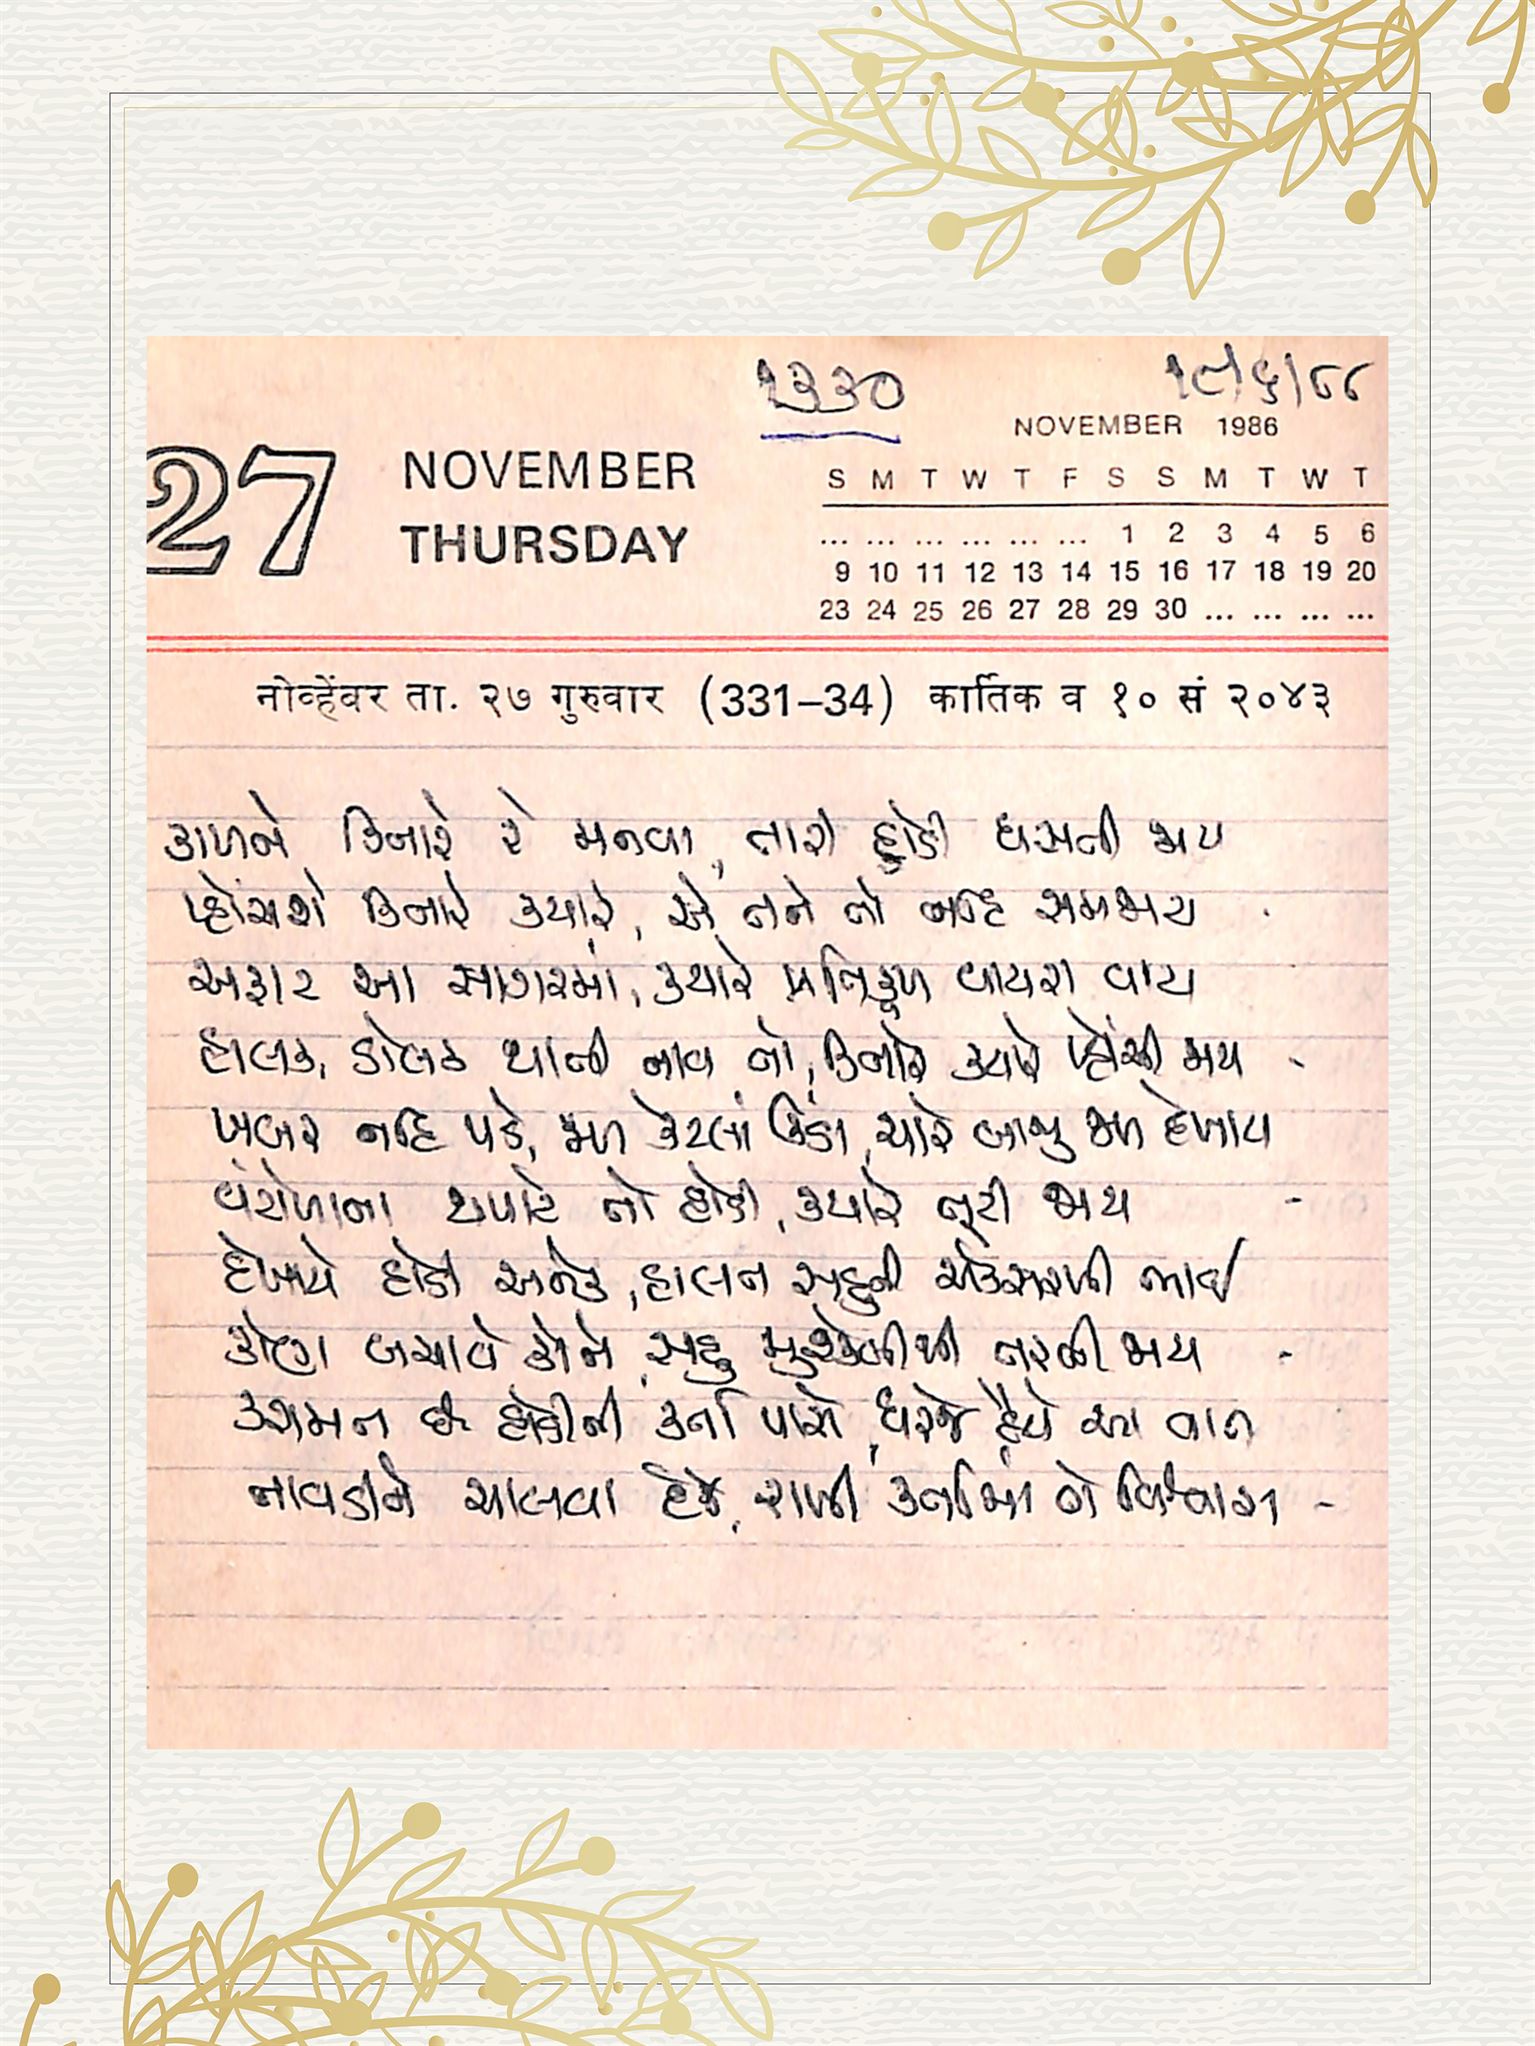 ૧૩૩૦
૧૮/૬/૮૮
NOVEMBER 1986
27 NOVEMBER
THURSDAY
S M T W T F S S M T W T
... ... ... ... ... ... 1 2 3 4 5 6
9 10 11 12 13 14 15 16 17 18 19 20
23 24 25 26 27 28 29 30 ... ... ... ...
नोव्हेंबर ता. २७ गुरुवार (331–34) कार्तिक व १० सं २०४३
કાળને કિનારે રે મનવા, તારી હોડી ધસતી જાય
પ્હોંચશે કિનારે ક્યારે, એ તને તો નહિ સમજાય
અફાટ આ સાગરમાં, ક્યારે પ્રતિકૂળ વાયરા વાય
હાલક, ડોલક થાતી નાવ તો, કિનારે ક્યારે પ્હોંચી જાય -
ખબર નહિ પડે, જળ કેટલાં ઊંડાં, ચારે બાજુ જળ દેખાય
વંટોળાના થપાટે તો હોડી, ક્યારે તૂટી જાય -
દેખાયે હોડી અનેક, હાલત સહુની એકસરખી ભાઈ
કોણ બચાવે કોને, સહુ મુશ્કેલીથી તરતી જાય -
કરામત છે હોડીની કર્તા પાસે, ધરજે હૈયે આ વાત
નાવડીને ચાલવા દેજે, રાખી કર્તામાં તો વિશ્વાસ -